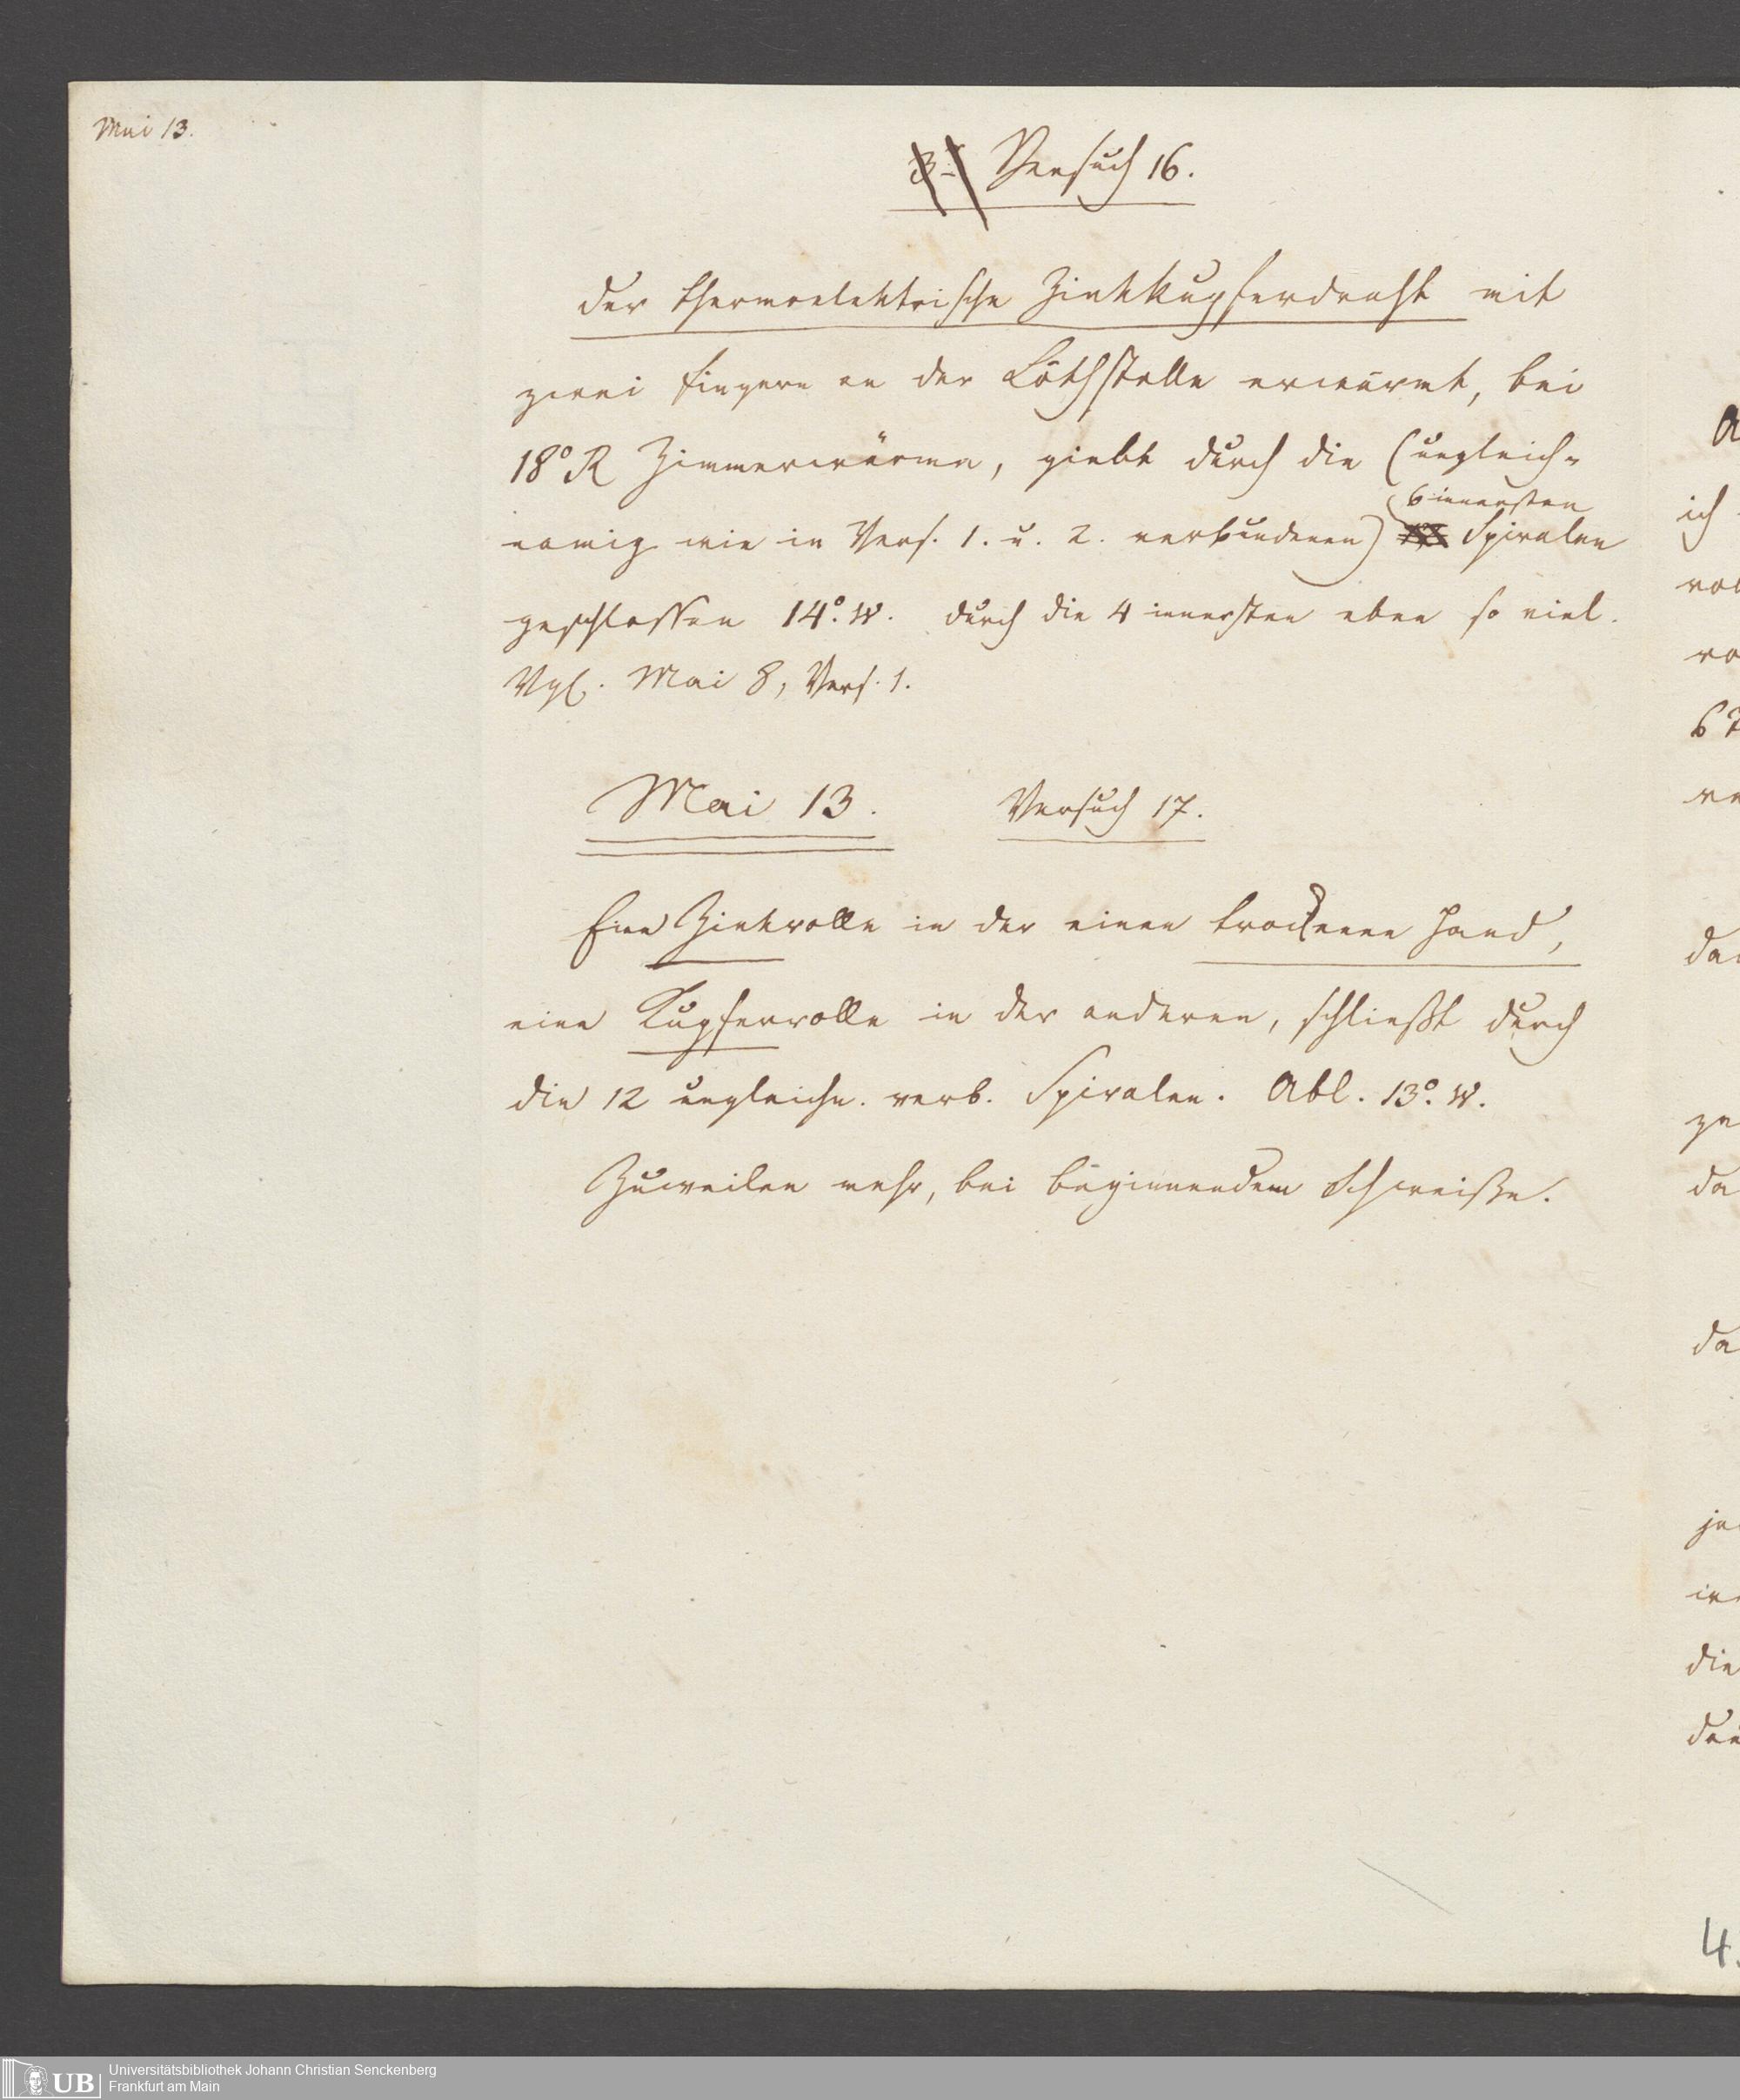 Mai 13.
Versuch 16.
der thermoelektrische Zinkkupferdraht mit
zwei Fingern an der Löthstelle erwärmt, bei
18° R Zimmerwärme, giebt durch die (ungleich-
6 innersten
namig wie in Vers. 1. u. 2. verbundenen) Spiralen
geschlossen 14°. W. durch die 4 innersten eben so viel.
Vgl. Mai 8, Vers. 1.
Mai 13. Versuch 17.
Eine Zinkrolle in der einen trockenen Hand,
eine Kupferrolle in der anderen, schließt durch
die 12 ungleichn. verb. Spiralen. Abl. 13°. W.
Zuweilen mehr, bei beginnendem Schweiße.
ich
die
4.
UB Universitätsbibliothek Johann Christian Senckenberg
Frankfurt am Main